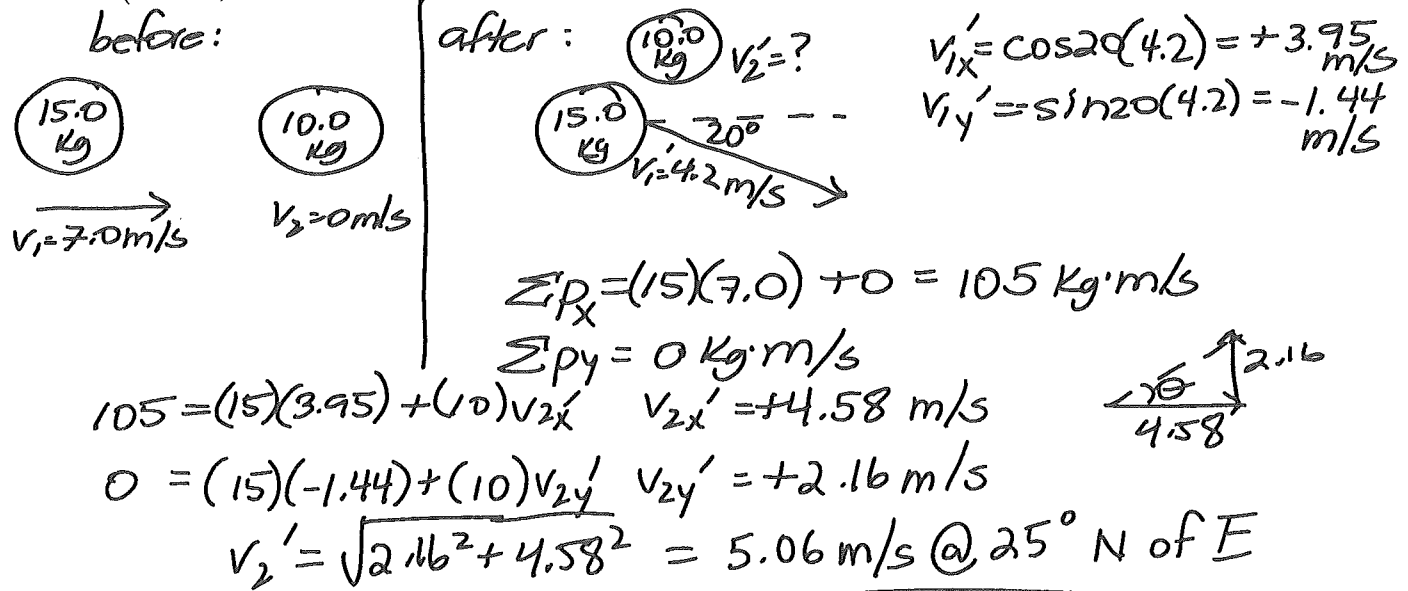 before:
after:
15.0 kg
10.0 kg
v₁=7.0m/s
v₂=0m/s
10.0 kg v₂'=?
15.0 kg
20°
v₁'=4.2m/s
v₁ₓ'=cos20(4.2)=+3.95 m/s
v₁y'=-sin20(4.2)=-1.44 m/s
Σpₓ=(15)(7.0)+0=105 kg·m/s
Σpy=0 kg·m/s
105=(15)(3.95)+(10)v₂ₓ' v₂ₓ'=+4.58 m/s
θ 2.16
4.58
0=(15)(-1.44)+(10)v₂y' v₂y'=+2.16 m/s
v₂'=√2.16²+4.58² = 5.06 m/s @ 25° N of E